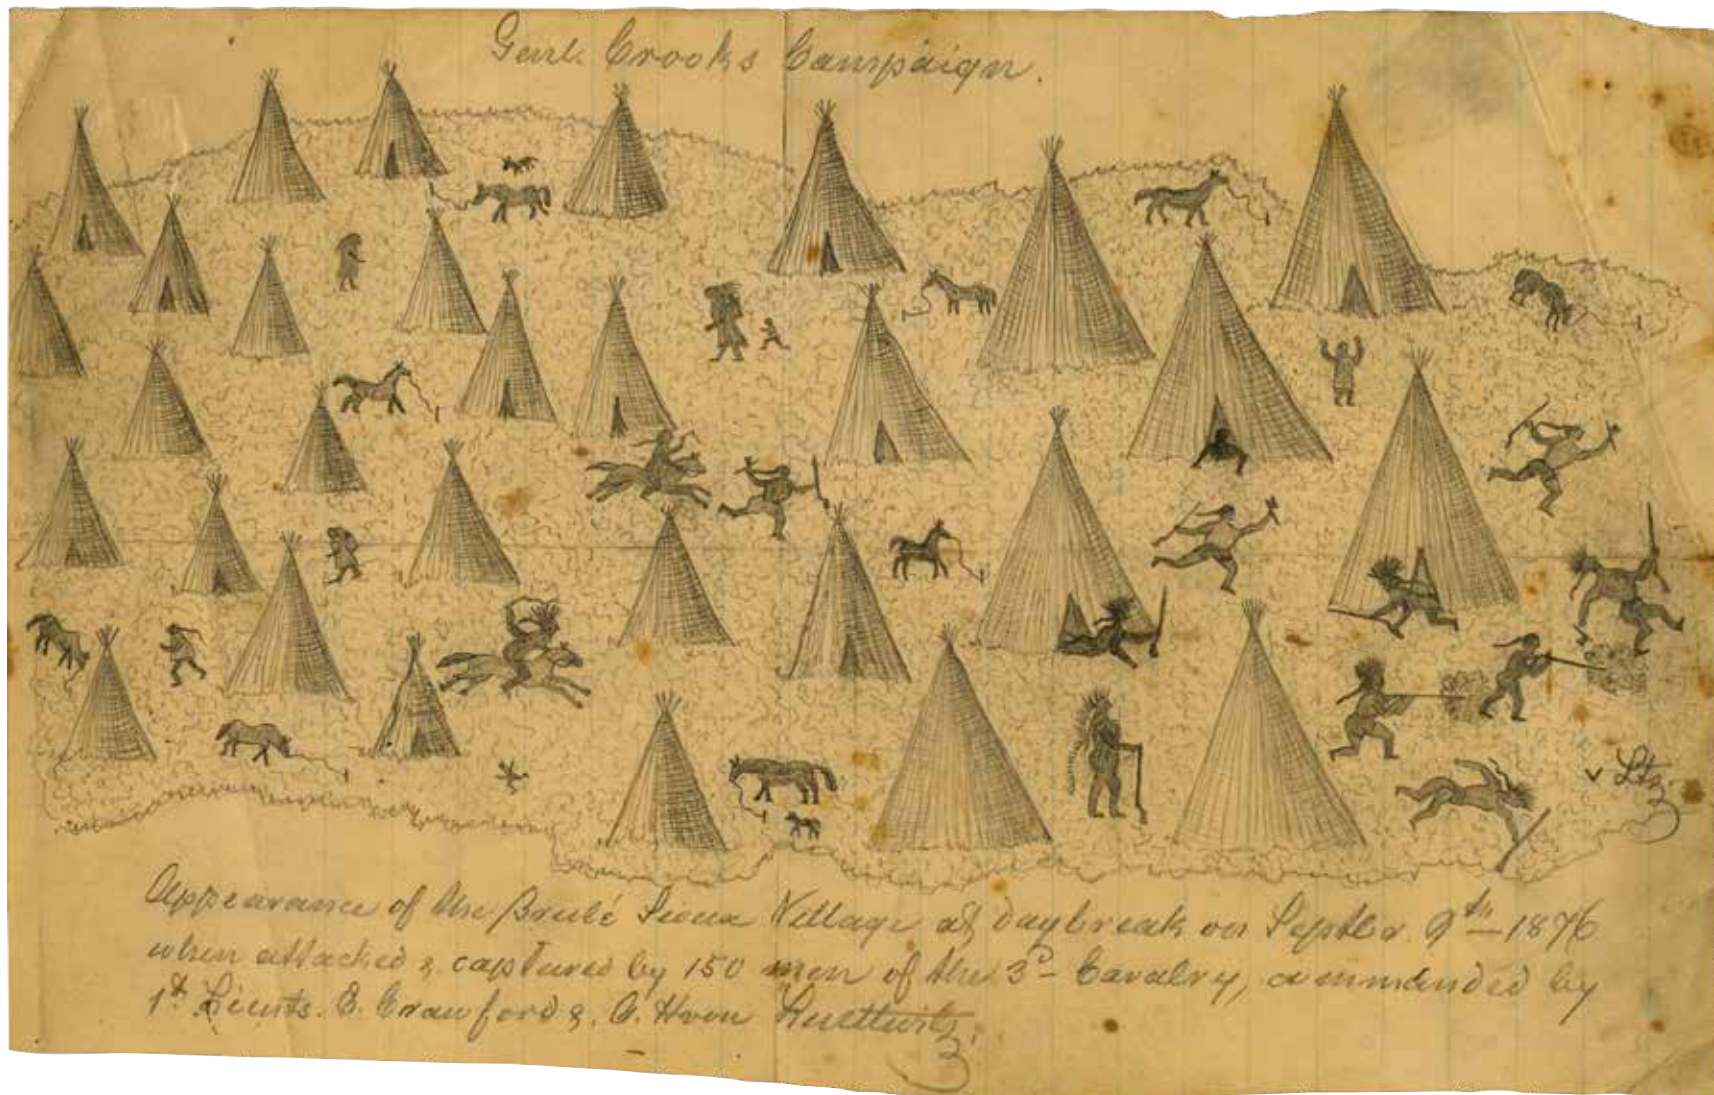 Genl. Crooks Campaign.
v Ltz
Appearance of the Brulé Sioux Village at daybreak on Septbr. 9th 1876
when attacked & captured by 150 men of the 3d Cavalry, commanded by
1t Lieuts. E. Crawford &. A. H von Luettwitz.